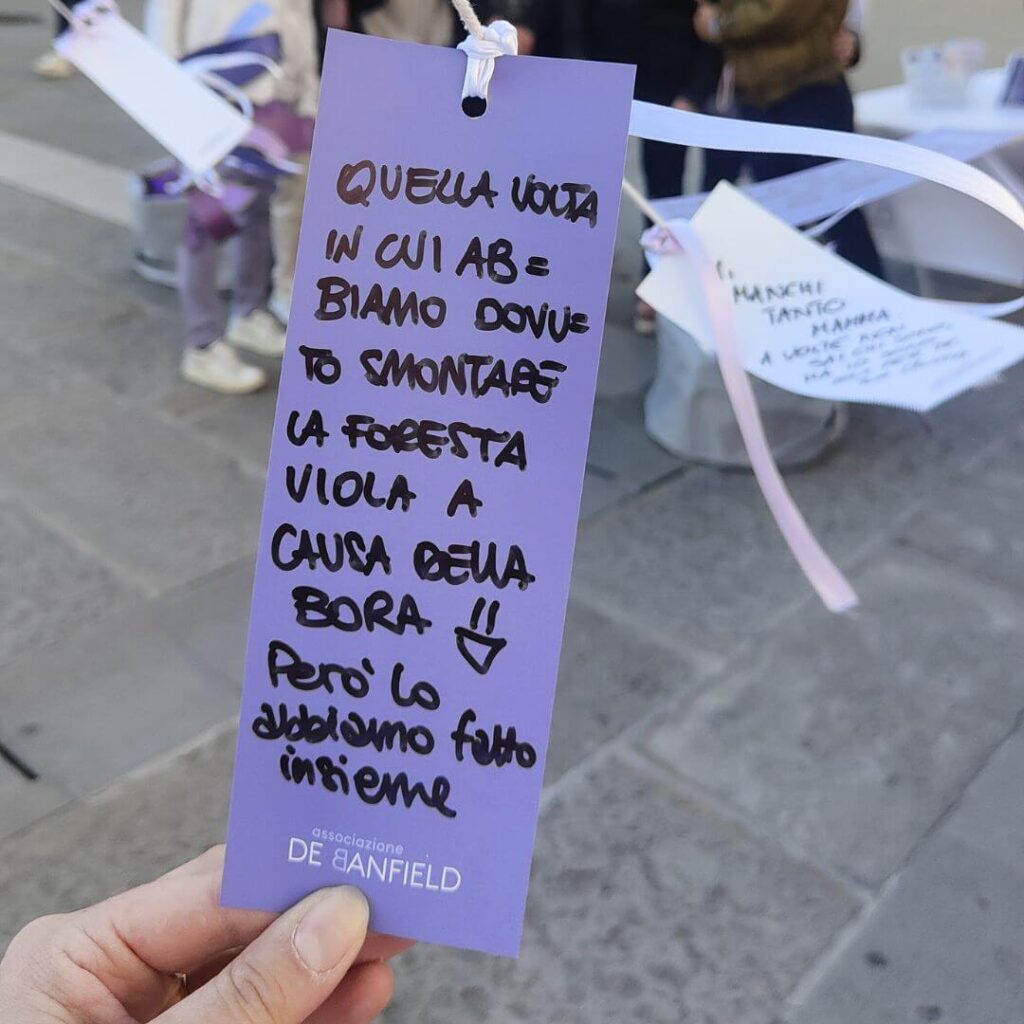 QUELLA VOLTA
IN CUI AB=
BIAMO DOVU=
TO SMONTARE
LA FORESTA
VIOLA A
CAUSA DELLA
BORA
Però lo
abbiamo fatto
insieme
associazione
DE BANFIELD
MANCHI
TANTO
MAMMA
A VOLTE